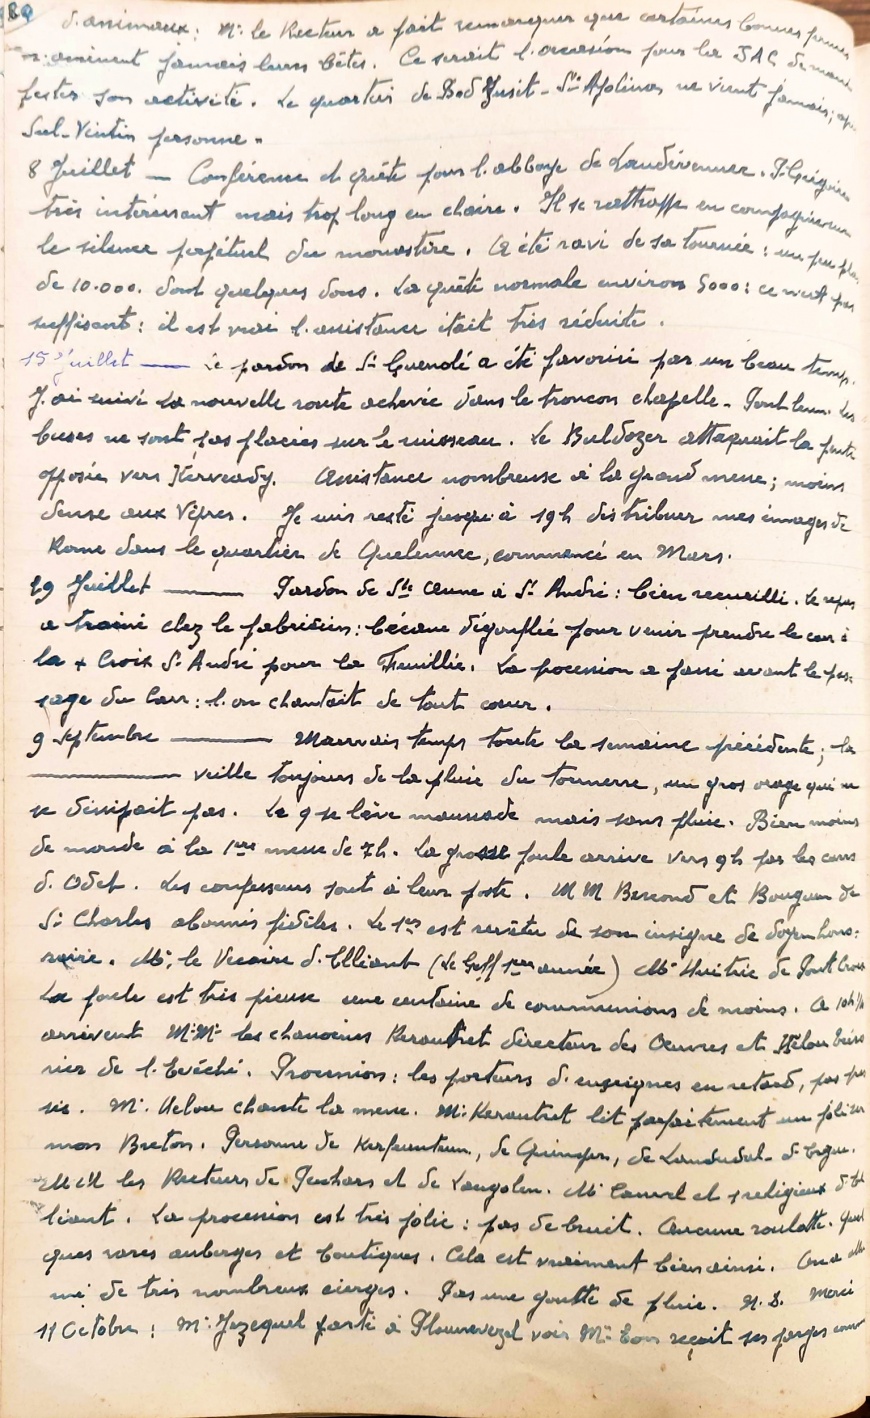 80
d'animaux: Mr le Recteur a fait remarquer que certaines bonnes fermes
n'amènent jamais leurs bêtes. Ce serait l'occasion pour la JAC de mani-
fester son activité. Le quartier de Bod Jusit - St Apolinar ne vient jamais;
Sul-Vintin personne.
8 Juillet — Conférence et quête pour l'abbaye de Landévennec. P. Grégoire
très intéressant mais trop long en chaire. Il se rattrappe en compagnie
le silence perpétuel du monastère. A été ravi de sa tournée: un peu plus
de 10.000. dont quelques dons. La quête normale environ 5000: ce n'est pas
suffisant: il est vrai l'assistance était très réduite.
15 Juillet — Le pardon de St Guenolé a été favorisé par un beau temps.
J'ai suivi la nouvelle route achevée dans le tronçon chapelle - Les
buses ne sont pas placées sur le ruisseau. Le Buldozer attaquait la pente
opposée vers Kerveady. Assistance nombreuse à la grand messe; moins
dense aux Vêpres. Je suis resté jusqu'à 19h distribuer mes images de
Rome dans le quartier de Quelennec, commencé en Mars.
29 Juillet — Pardon de Ste Anne à St André: bien recueilli. Le repas
a trainé chez le fabricien: bécane dégonflée pour venir prendre le car à
la + Croix St André pour la Feuillée. La procession a passé avant le pas-
sage du Carr: l'on chantait de tout cœur.
9 Septembre — Mauvais temps toute la semaine précédente; la
— veille toujours de la pluie du tonnerre, un gros orage qui ne
se dissipait pas. Le 9 se lève maussade mais sans pluie. Bien moins
de monde à la 1ere messe de 7h. La grosse foule arrive vers 9h par les cars
d'Odet. Les confesseurs sont à leur poste. MM Bescond et Bouguen de
St Charles abonnés fidèles. Le 1er est revêtu de son insigne de doyen hono-
raire. Mr le Vicaire d'Elliant (Le Goff 1ere année) Mr Huitric de Pont Croix
La foule est très pieuse une centaine de communions de moins. A 10h 1/2
arrivent MrMr les chanoines Kerautret directeur des Oeuvres et Hélou tréso-
rier de l'Evêché. Procession: les porteurs d'enseignes en retard, pas
Mr Helou chante la messe. Mr Kerautret lit parfaitement un joli ser
mon Breton. Personne de Kerfeunteun, de Quimper, de Landudal - d'Ergué.
MM les Recteurs de Penhars et de Langolen. Mr Canvel et 1 religieux d'El
liant. La procession est très jolie: pas de bruit. Aucune roulotte. Quel
ques rares auberges et boutiques. Cela est vraiment bien ainsi. On a allu
mé de très nombreux cierges. Pas une goutte de pluie. N.D. Merci
11 Octobre: Mr Jezequel parti à Plounevezel voir Mr Eon reçoit ses